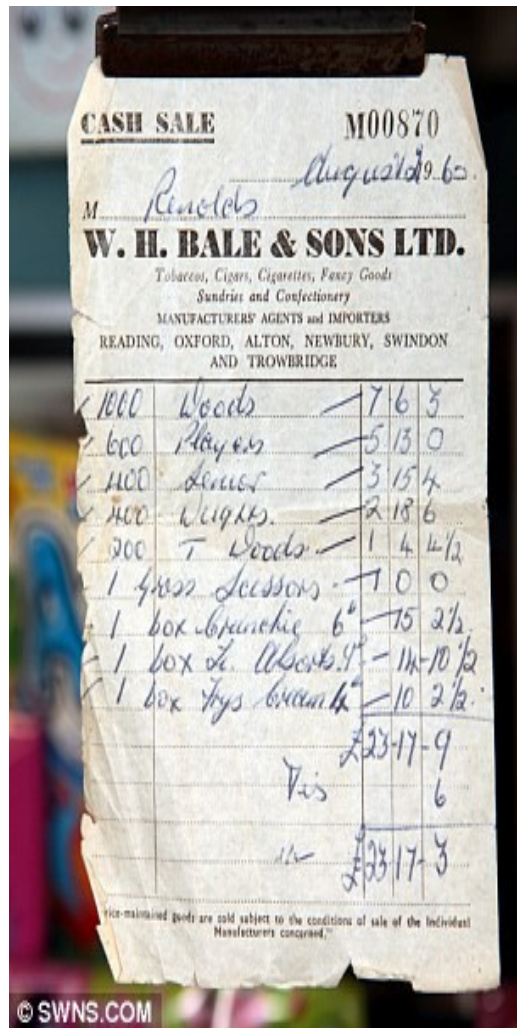 CASH SALE M00870
August 1960.
M Renolds
W. H. BALE & SONS LTD.
Tobaccos, Cigars, Cigarettes, Fancy Goods
Sundries and Confectionery
MANUFACTURERS' AGENTS and IMPORTERS
READING, OXFORD, ALTON, NEWBURY, SWINDON
AND TROWBRIDGE
1000 Woods 7 6 3
600 Players 5 13 0
400 Senior 3 15 4
400 Weights. 2 18 6
200 T Woods 1 4 4 1/2
1 Gross Scissors 1 0 0
1 box Crunchie 6d 15 2 1/2
1 box 4d 14 - 10 1/2
1 box Frys Cream 4d 10 2 1/2
£23-17-9
Dis 6
£23-17-3
rice-maintained goods are sold subject to the conditions of sale of the Individual
Manufacturers concerned."
© SWNS.COM